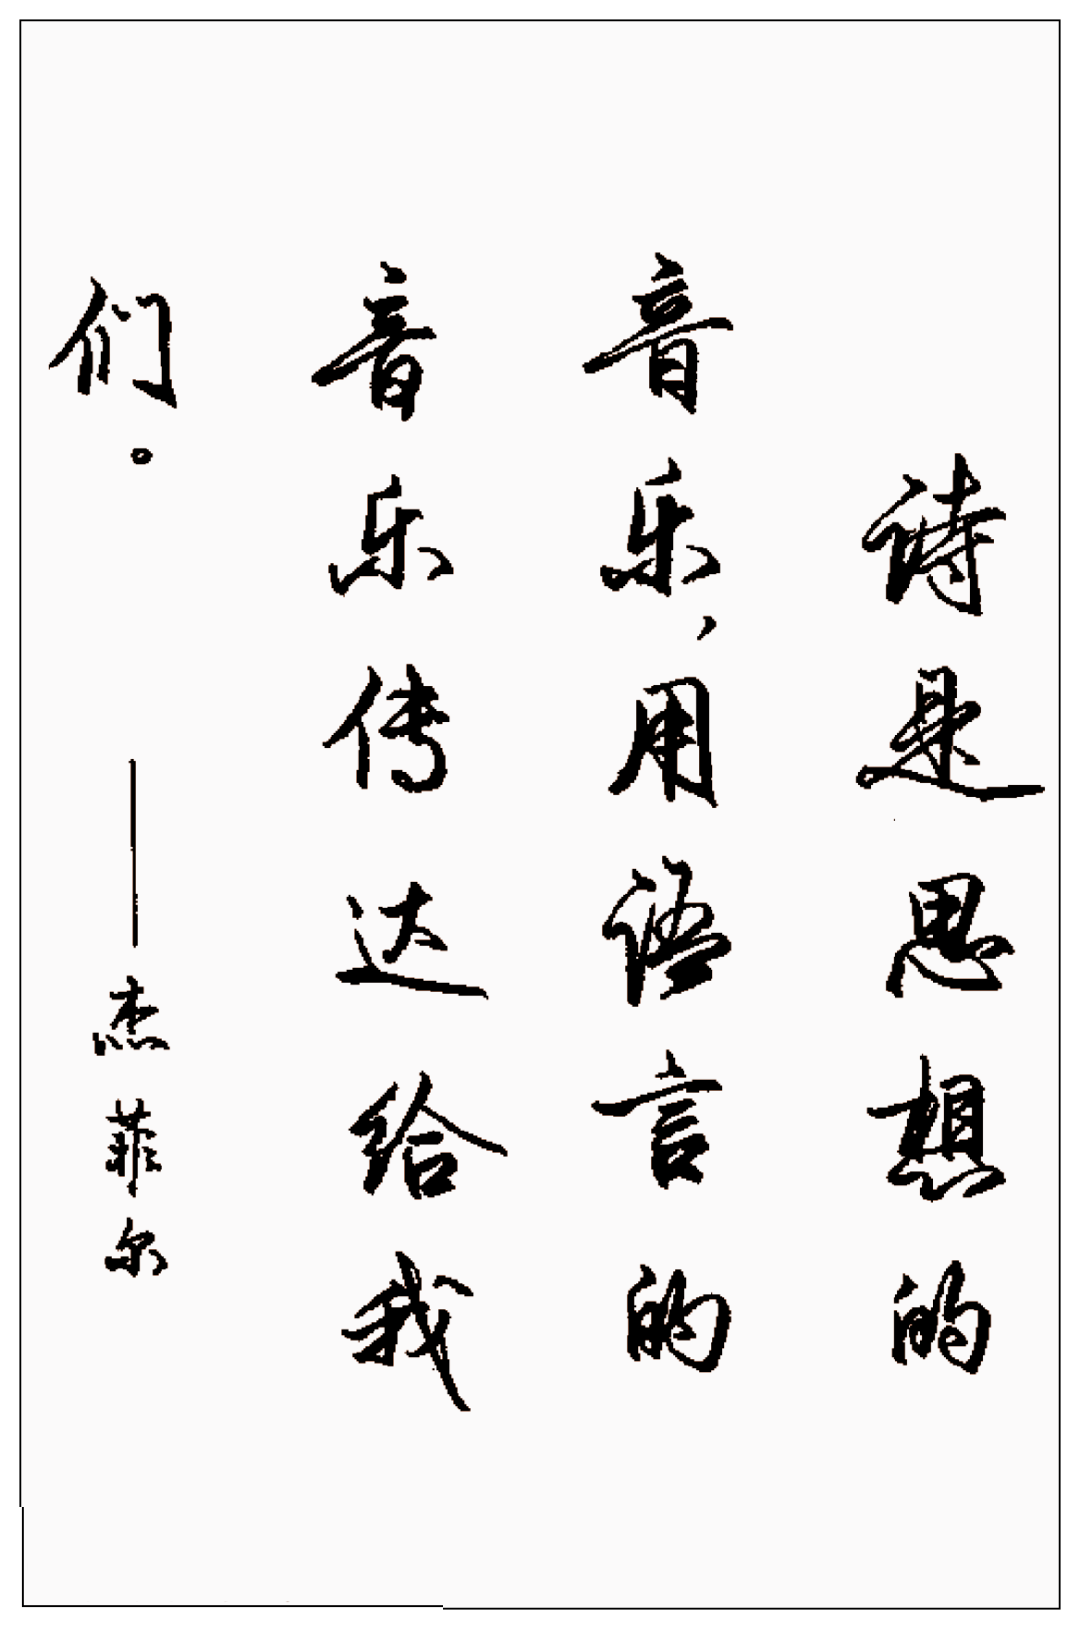 诗是思想的
音乐，用语言的
音乐传达给我
们。
——杰菲尔